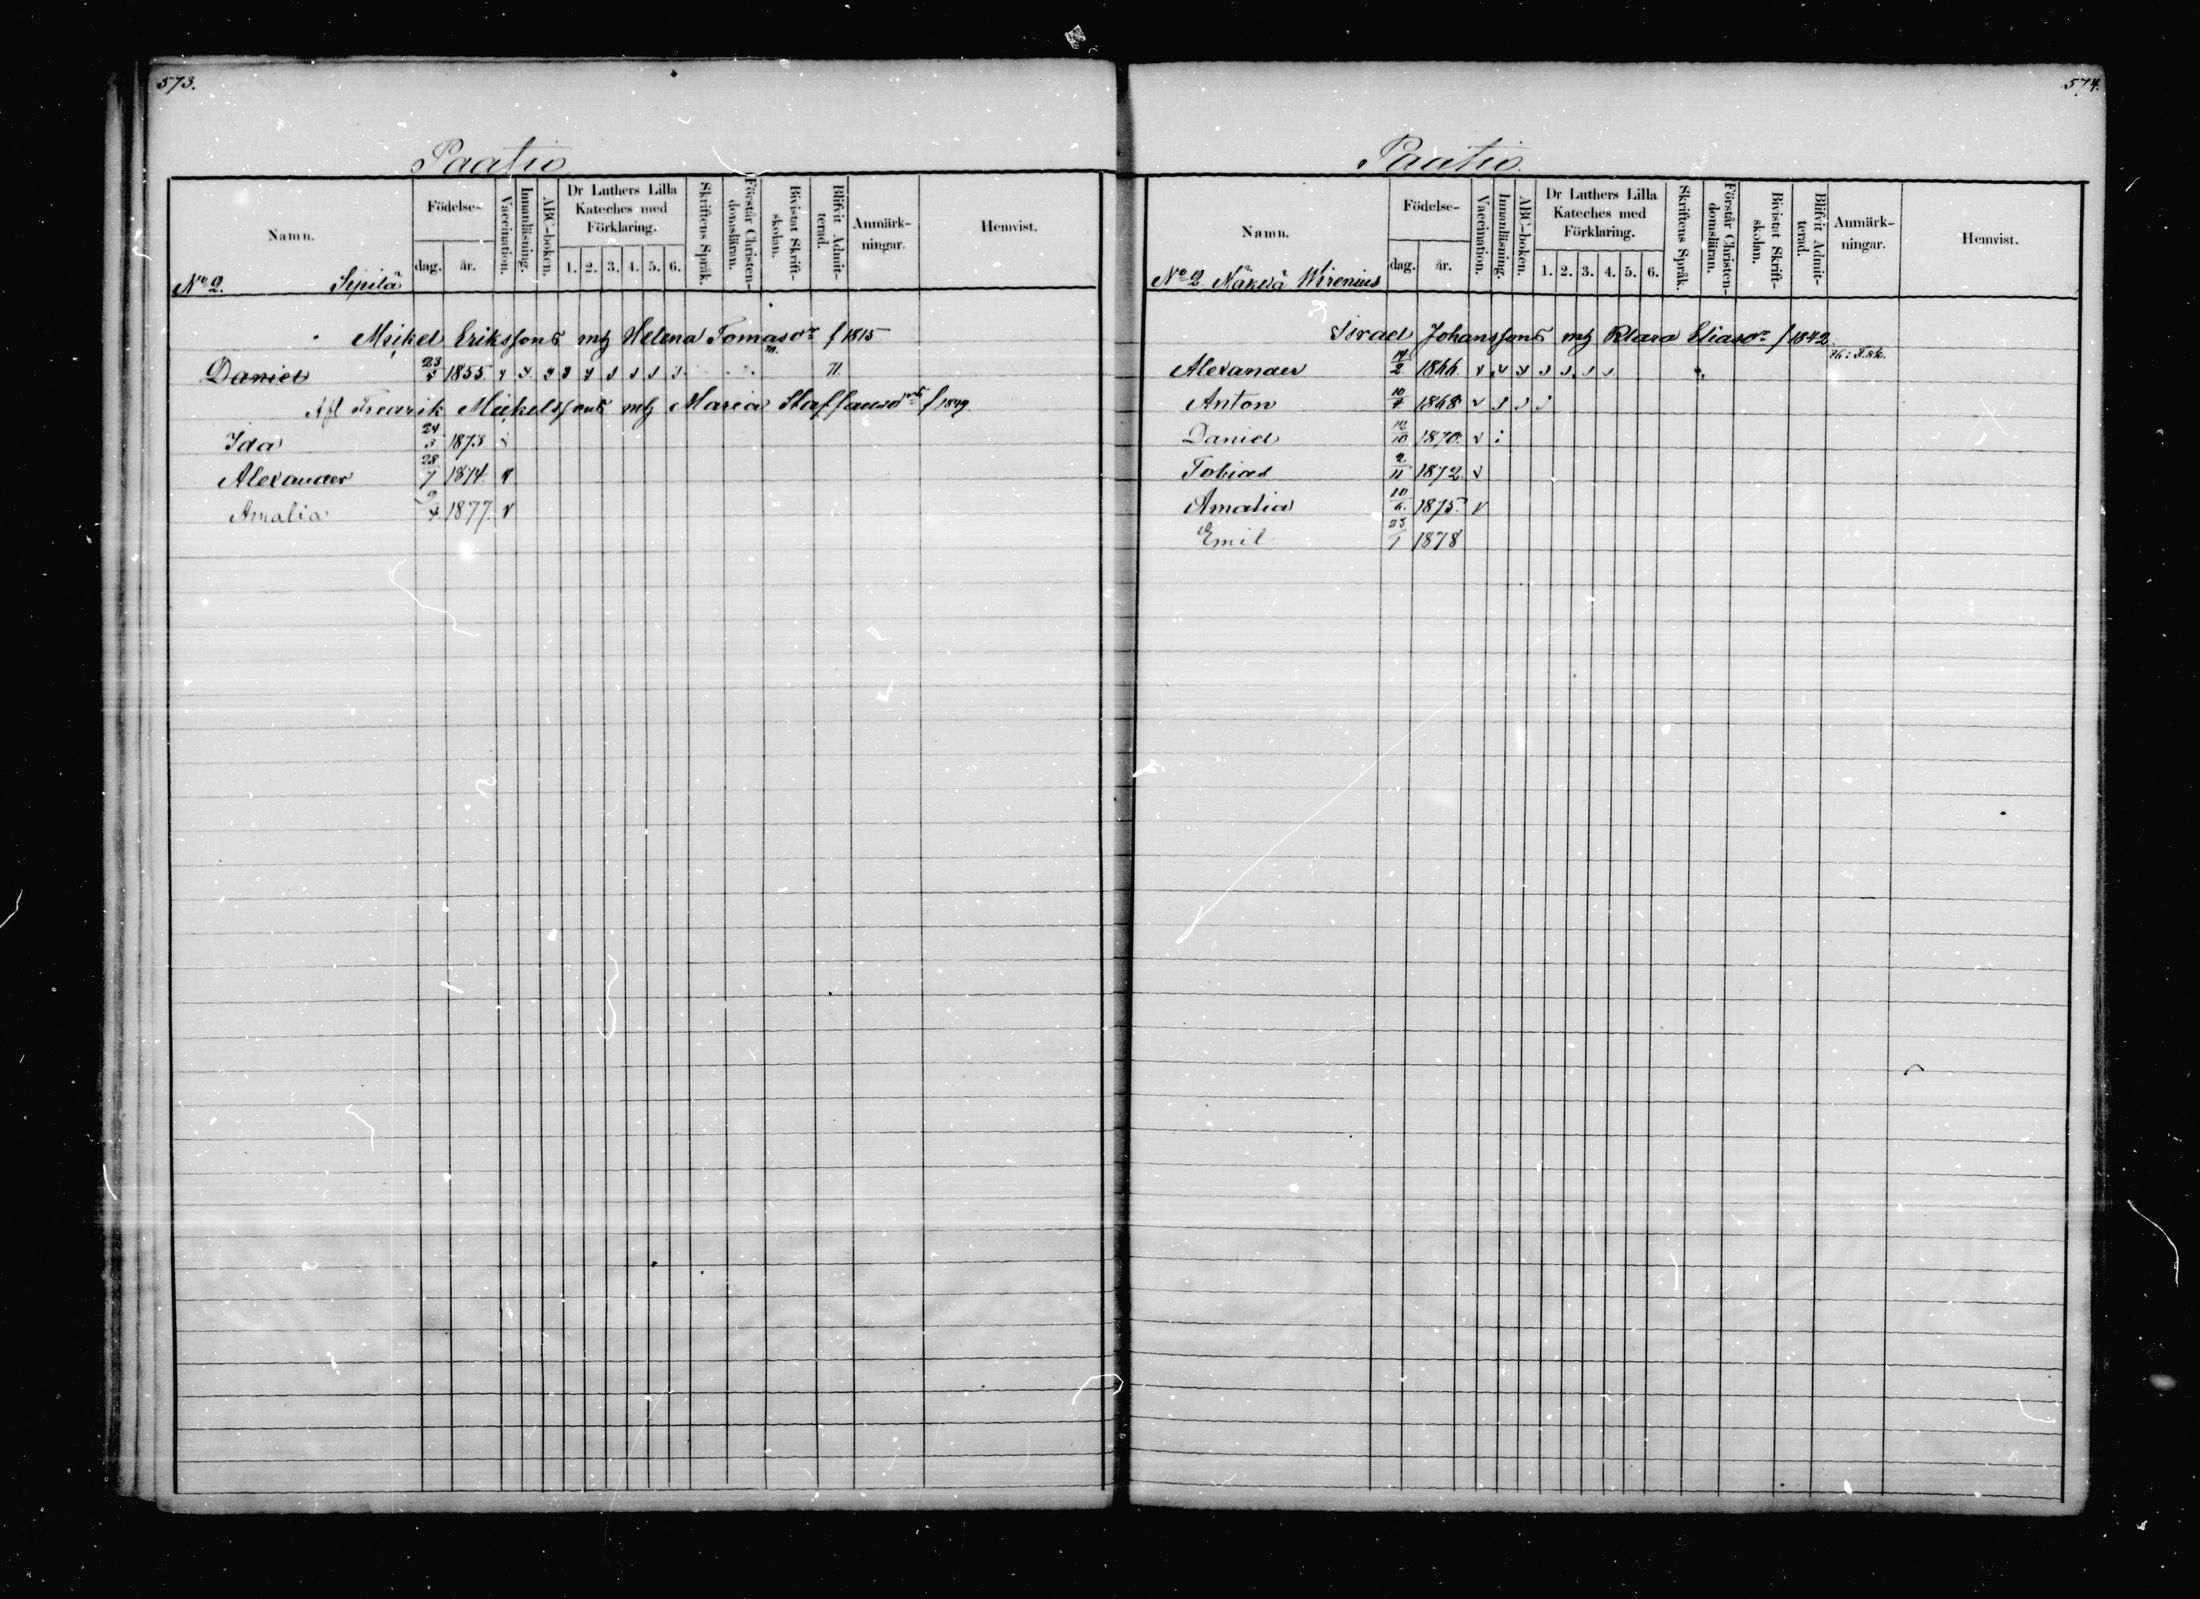 573.
Paatio
Namn.
Födelse-
dag.
år.
Vaccination.
Innanläsning.
ABC-boken.
Dr Luthers Lilla Kateches med Förklaring.
1. 2. 3. 4. 5. 6.
Skriftens Språk.
Förstår Christendomsläran.
Bivistat Skriftskolan.
Blifvit Admitterad.
Anmärkningar.
Hemvist.
No 2. Sipilä
Mickel Erikssons mh Helena Tomasdr f 1815
Daniel 23/4 1855
Afl Fredrik Mickelssons mh Maria Staffansd f 1849
Ida 24/3 1873
Alexander 28/7 1874
Amalia 9/4 1877.
574.
Paatio.
Namn.
Födelse-
dag.
år.
Vaccination.
Innanläsning.
ABC-boken.
Dr Luthers Lilla Kateches med Förklaring.
1. 2. 3. 4. 5. 6.
Skriftens Språk.
Förstår Christendomsläran.
Bivistat Skriftskolan.
Blifvit Admitterad.
Anmärkningar.
Hemvist.
No 2 Näkvä Wirenius
Israel Johanssons mh Klara Eliasdr f 1842
Alexander 14/2 1866.
Anton 10/4 1868
Daniel 12/10 1870.
Tobias 2/11 1872.
Amalia 10/6 1875.
Emil 23/1 1878